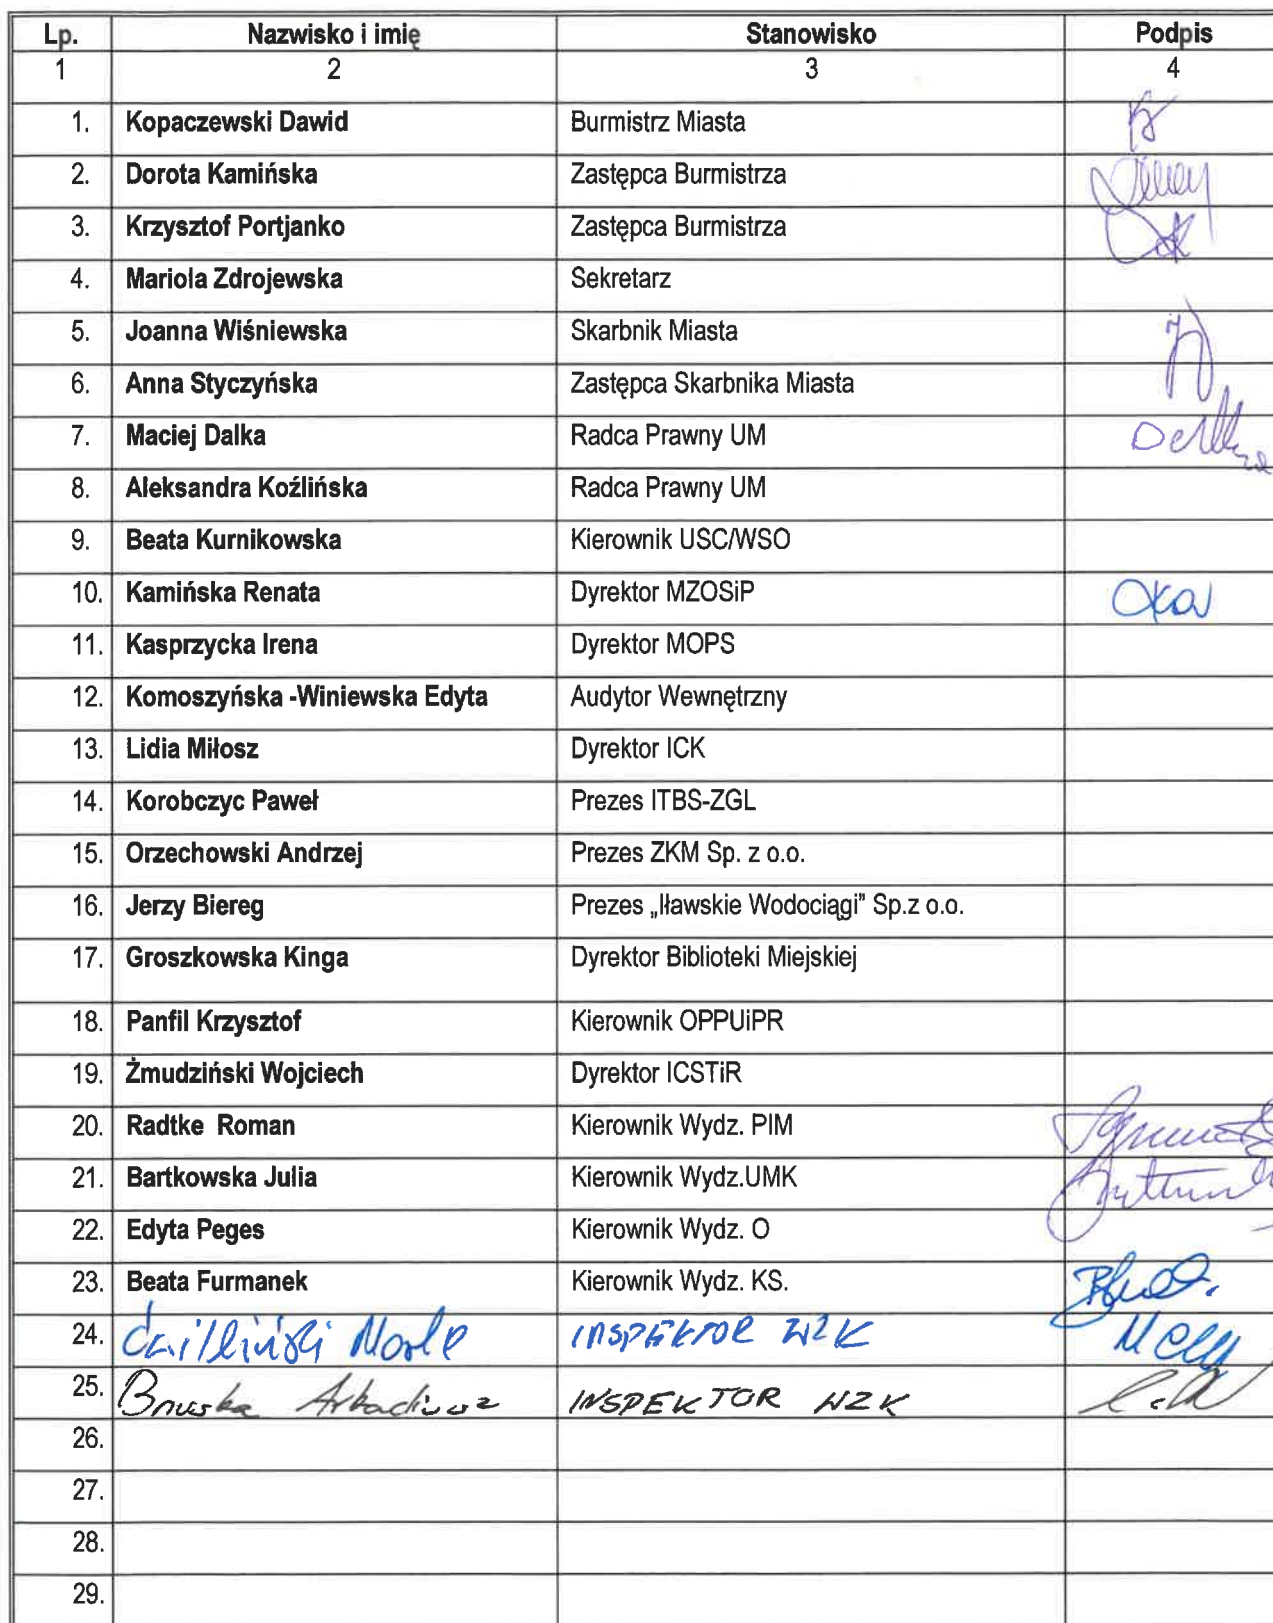 Lp. Nazwisko i imię Stanowisko Podpis
1 2 3 4
1. Kopaczewski Dawid Burmistrz Miasta
2. Dorota Kamińska Zastępca Burmistrza
3. Krzysztof Portjanko Zastępca Burmistrza
4. Mariola Zdrojewska Sekretarz
5. Joanna Wiśniewska Skarbnik Miasta
6. Anna Styczyńska Zastępca Skarbnika Miasta
7. Maciej Dalka Radca Prawny UM
8. Aleksandra Koźlińska Radca Prawny UM
9. Beata Kurnikowska Kierownik USC/WSO
10. Kamińska Renata Dyrektor MZOSiP
11. Kasprzycka Irena Dyrektor MOPS
12. Komoszyńska -Winiewska Edyta Audytor Wewnętrzny
13. Lidia Miłosz Dyrektor ICK
14. Korobczyc Paweł Prezes ITBS-ZGL
15. Orzechowski Andrzej Prezes ZKM Sp. z o.o.
16. Jerzy Biereg Prezes „Iławskie Wodociągi” Sp.z o.o.
17. Groszkowska Kinga Dyrektor Biblioteki Miejskiej
18. Panfil Krzysztof Kierownik OPPUiPR
19. Żmudziński Wojciech Dyrektor ICSTiR
20. Radtke Roman Kierownik Wydz. PIM
21. Bartkowska Julia Kierownik Wydz.UMK
22. Edyta Peges Kierownik Wydz. O
23. Beata Furmanek Kierownik Wydz. KS.
24. INSPEKTOR WZK
25. Arkadiusz INSPEKTOR WZK
26.
27.
28.
29.